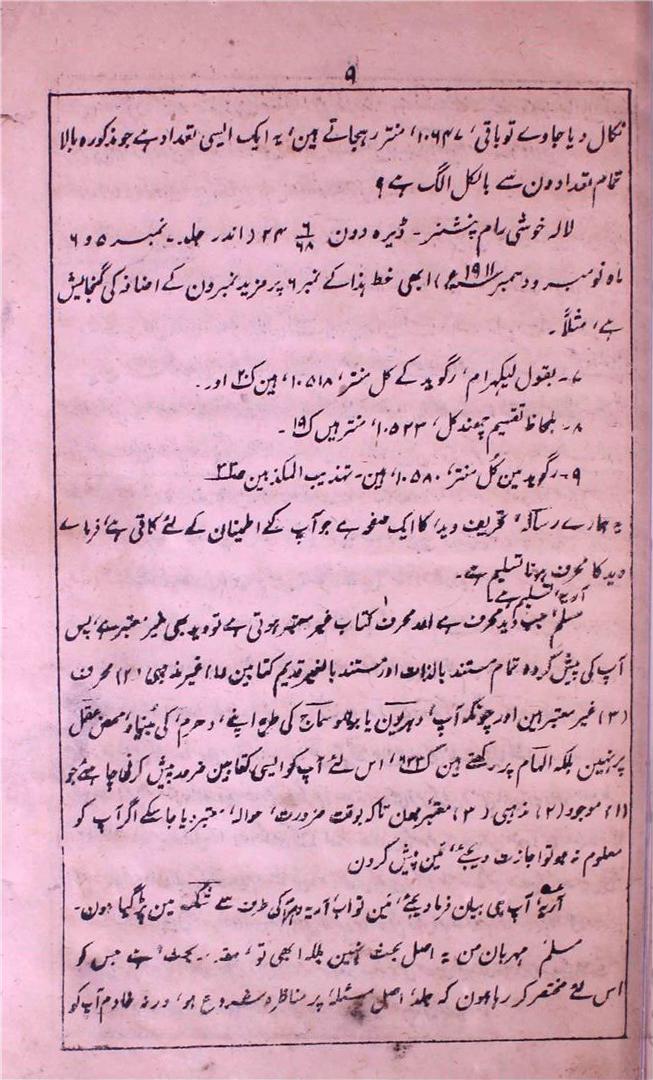 ۹
نکال دیا جاوے تو باقی ‘۱۰۶۴۷’ منتر رہجاتے ہین‘ یہ ایک ایسی تعداد ہے جو مذکورہ بالا
تمام تعدادون سے بالکل الگ ہے ؟
لالہ خوشی رام پنشنر۔ ڈیرہ دون ۶/۶۸ ۲۴ (اندر جلد۔ نمبر ۵ و ۶
ماہ نومبر و دسمبر ۱۹۱۱ء) ابھی خط ہذا کے نمبر ۶ پر مزید نمبرون کے اضافہ کی گنجایش
ہے، مثلاً۔
۷۔ بقول لیکھرام‘ رگوید کے کل منتر‘ ۱۰۵۱۸‘ ہین ک۲۰ اور۔
۸۔ بلحاظ تقسیم چھند کل‘ ۱۰۵۲۳‘ منتر ہیں ک۱۹۔
۹۔ رگوید مین کل منتر‘ ۱۰۵۸۰‘ ہین۔ تہذیب المکذبین
یہ ہمارے رسالہ‘ تحریف وید‘ کا ایک صفحہ ہے جو آپ کے اطینان کے لئے کافی ہے‘ فرمائے
وید کا محرف ہونا تسلیم ہے۔
آریہ‘ تسلیم ہے‘
مسلم‘ جب وید محرف ہے اور محرف کتاب غیر معتبر ہوتی ہے تو وید بھی غیر معتبر ہے‘ پس
آپ کی پیش کردہ تمام مستند بالذات اور مستند بالغیر قدیم کتابین (۱) غیر مذہبی (۲) محرف
(۳) غیر معتبر ہین اور چونکہ آپ‘ دہریون یا برہمو سماج کی طرح اپنے‘ دھرم‘ کی بنیاد‘ محض عقل
پر نہین بلکہ الہام پر رکھتے ہین ک۶۳۲‘ اس لئے آپ کو ایسی کتابین ضرور پیش کرنی چاہئے جو
(۱) موجود (۲) مذہبی (۳) معتبر ہون تاکہ بوقت ضرورت‘ حوالہ‘ معتبر دیا جا سکے اگر آپ کو
معلوم نہ ہو تو اجازت دیجئے‘ مین پیش کرون
آریہ‘ آپ ہی بیان فرما دیجئے‘ مین تو اب آریہ دھرم کی طرف سے شک مین پڑ گیا ہون۔
مسلم‘ مہربان من یہ اصل بحث نہین بلکہ ابھی تو‘ مقدمہ بحث‘ ہے جس کو
اس لئے مختصر کر رہا ہون کہ جلد‘ اصل مسئلہ‘ پر مناظرہ شروع ہو‘ ورنہ خادم آپ کو